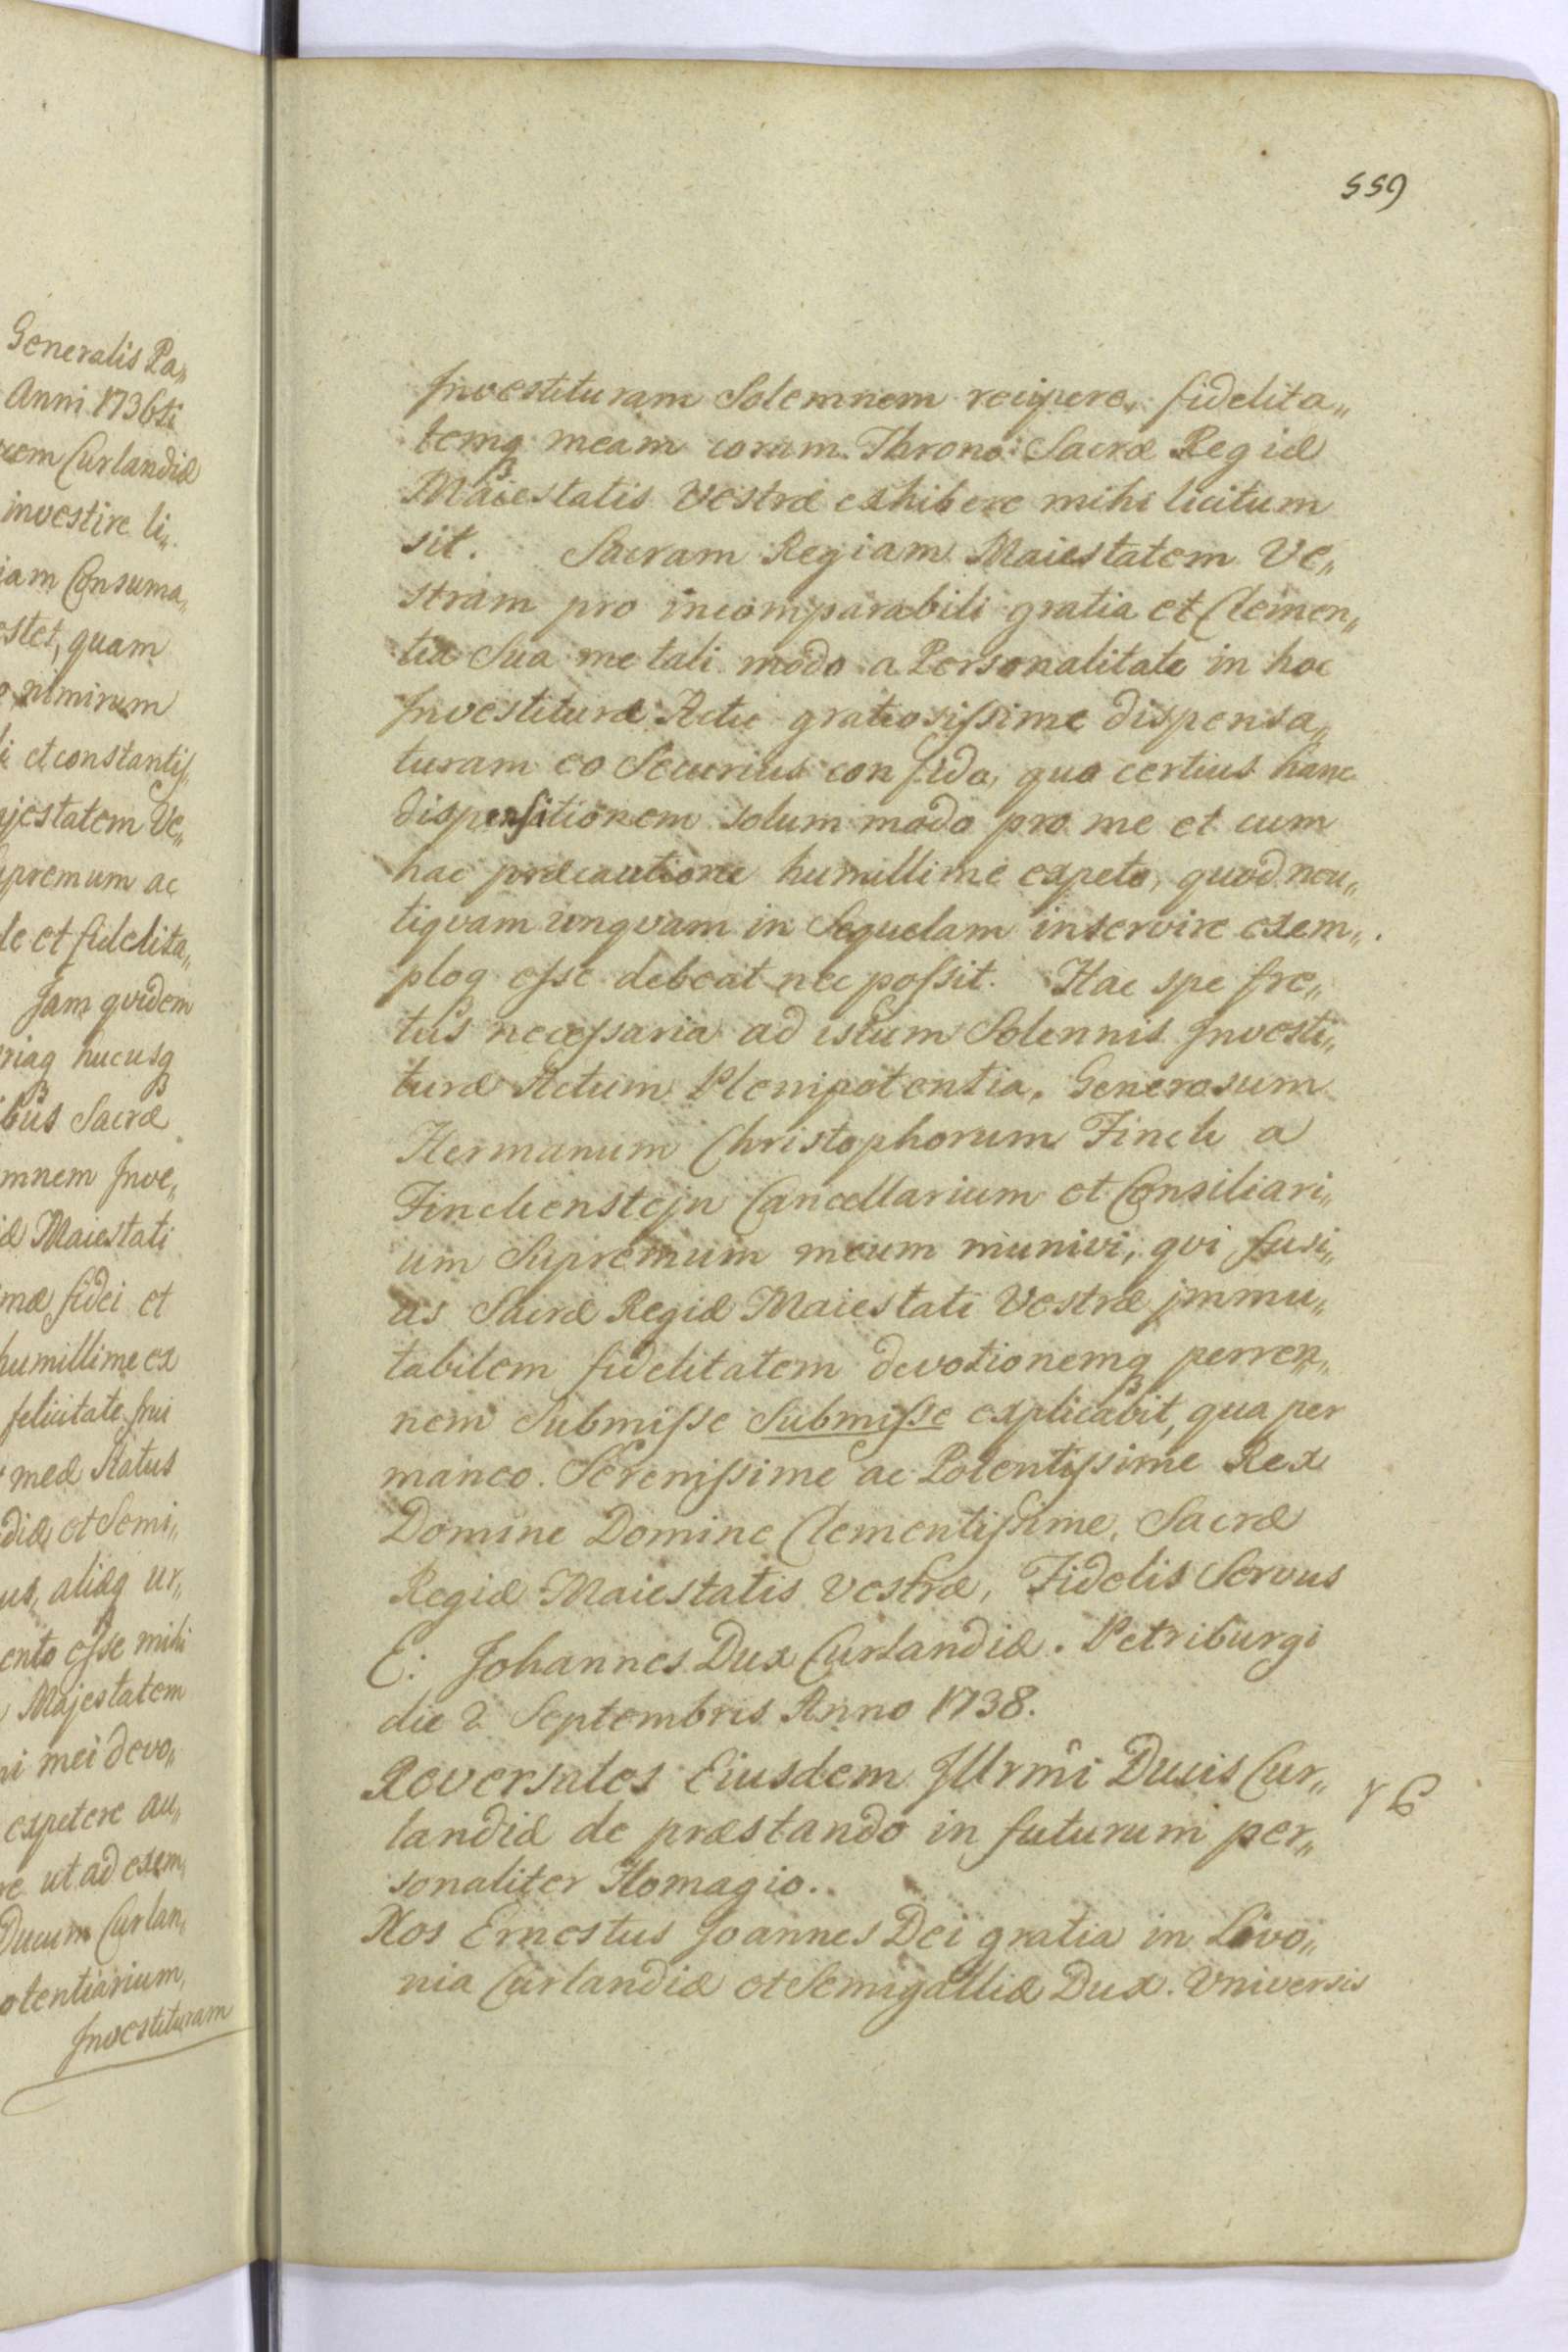 Generalis Pa„
Anni 1736ti
rem Curlandiæ
investire li„
iam Consuma„
estet, quam
nimirum
i et constantiss„
ajestatem Ve„
upremum ac
de et fidelita„
Jam qvidem
riaq hucusq
bus Sacræ
mnem Inve„
æ Maiestati
mæ fidei et
humillime ex
felicitate frui
meæ Status
diæ et Semi„
us, aliæq ur„
ento esse mihi
Majestatem
ni mei devo„
expetere au„
re ut ad exem„
Ducum Curlan„
otentiarium,
Investituram
559
Investituram Solemnem recipere, fidelita„
temq meam coram Throno Sacræ Regiæ
Maiestatis Vestræ exhibere mihi licitum
sit. Sacram Regiam Maiestatem Ve„
stram pro incomparabili gratia et Clemen„
tia Sua me tali modo a Personalitate in hoc
Investituræ Actu gratiosissime dispensa„
turam eo Securius confido, quo certius hanc
dispensationem solum modo pro me et cum
hac præcautione humillime expeto, quod neu„
tiqvam unqvam in Sequelam inservire exem„
ploq esse debeat nec possit. Hac spe fre„
tus necessaria ad istum Solennis Investi„
turæ Actum Plenipotentia, Generosum
Hermanum Christophorum Finck a
Finckenstejn Cancellarium et Consiliari„
um Supremum meum munivi, qvi fusi„
us Sacræ Regiæ Maiestati Vestræ jmmu„
tabilem fidelitatem devotionemq perren„
nem Submisse Submisse explicabit, qua per
maneo. Serenissime ac Potentissime Rex
Domine Domine Clementissime, Sacræ
Regiæ Maiestatis Vestræ, Fidelis Servus
E: Johannes Dux Curlandiæ. Petriburgi
die 2 Septembris Anno 1738.
Reversales Eiusdem Jllrmi Ducis Cur„
landiæ de præstando in futurum per„
sonaliter Homagio.
Nos Ernestus Joannes Dei gratia in Livo„
nia Curlandiæ et Semigalliæ Dux. Vniversis